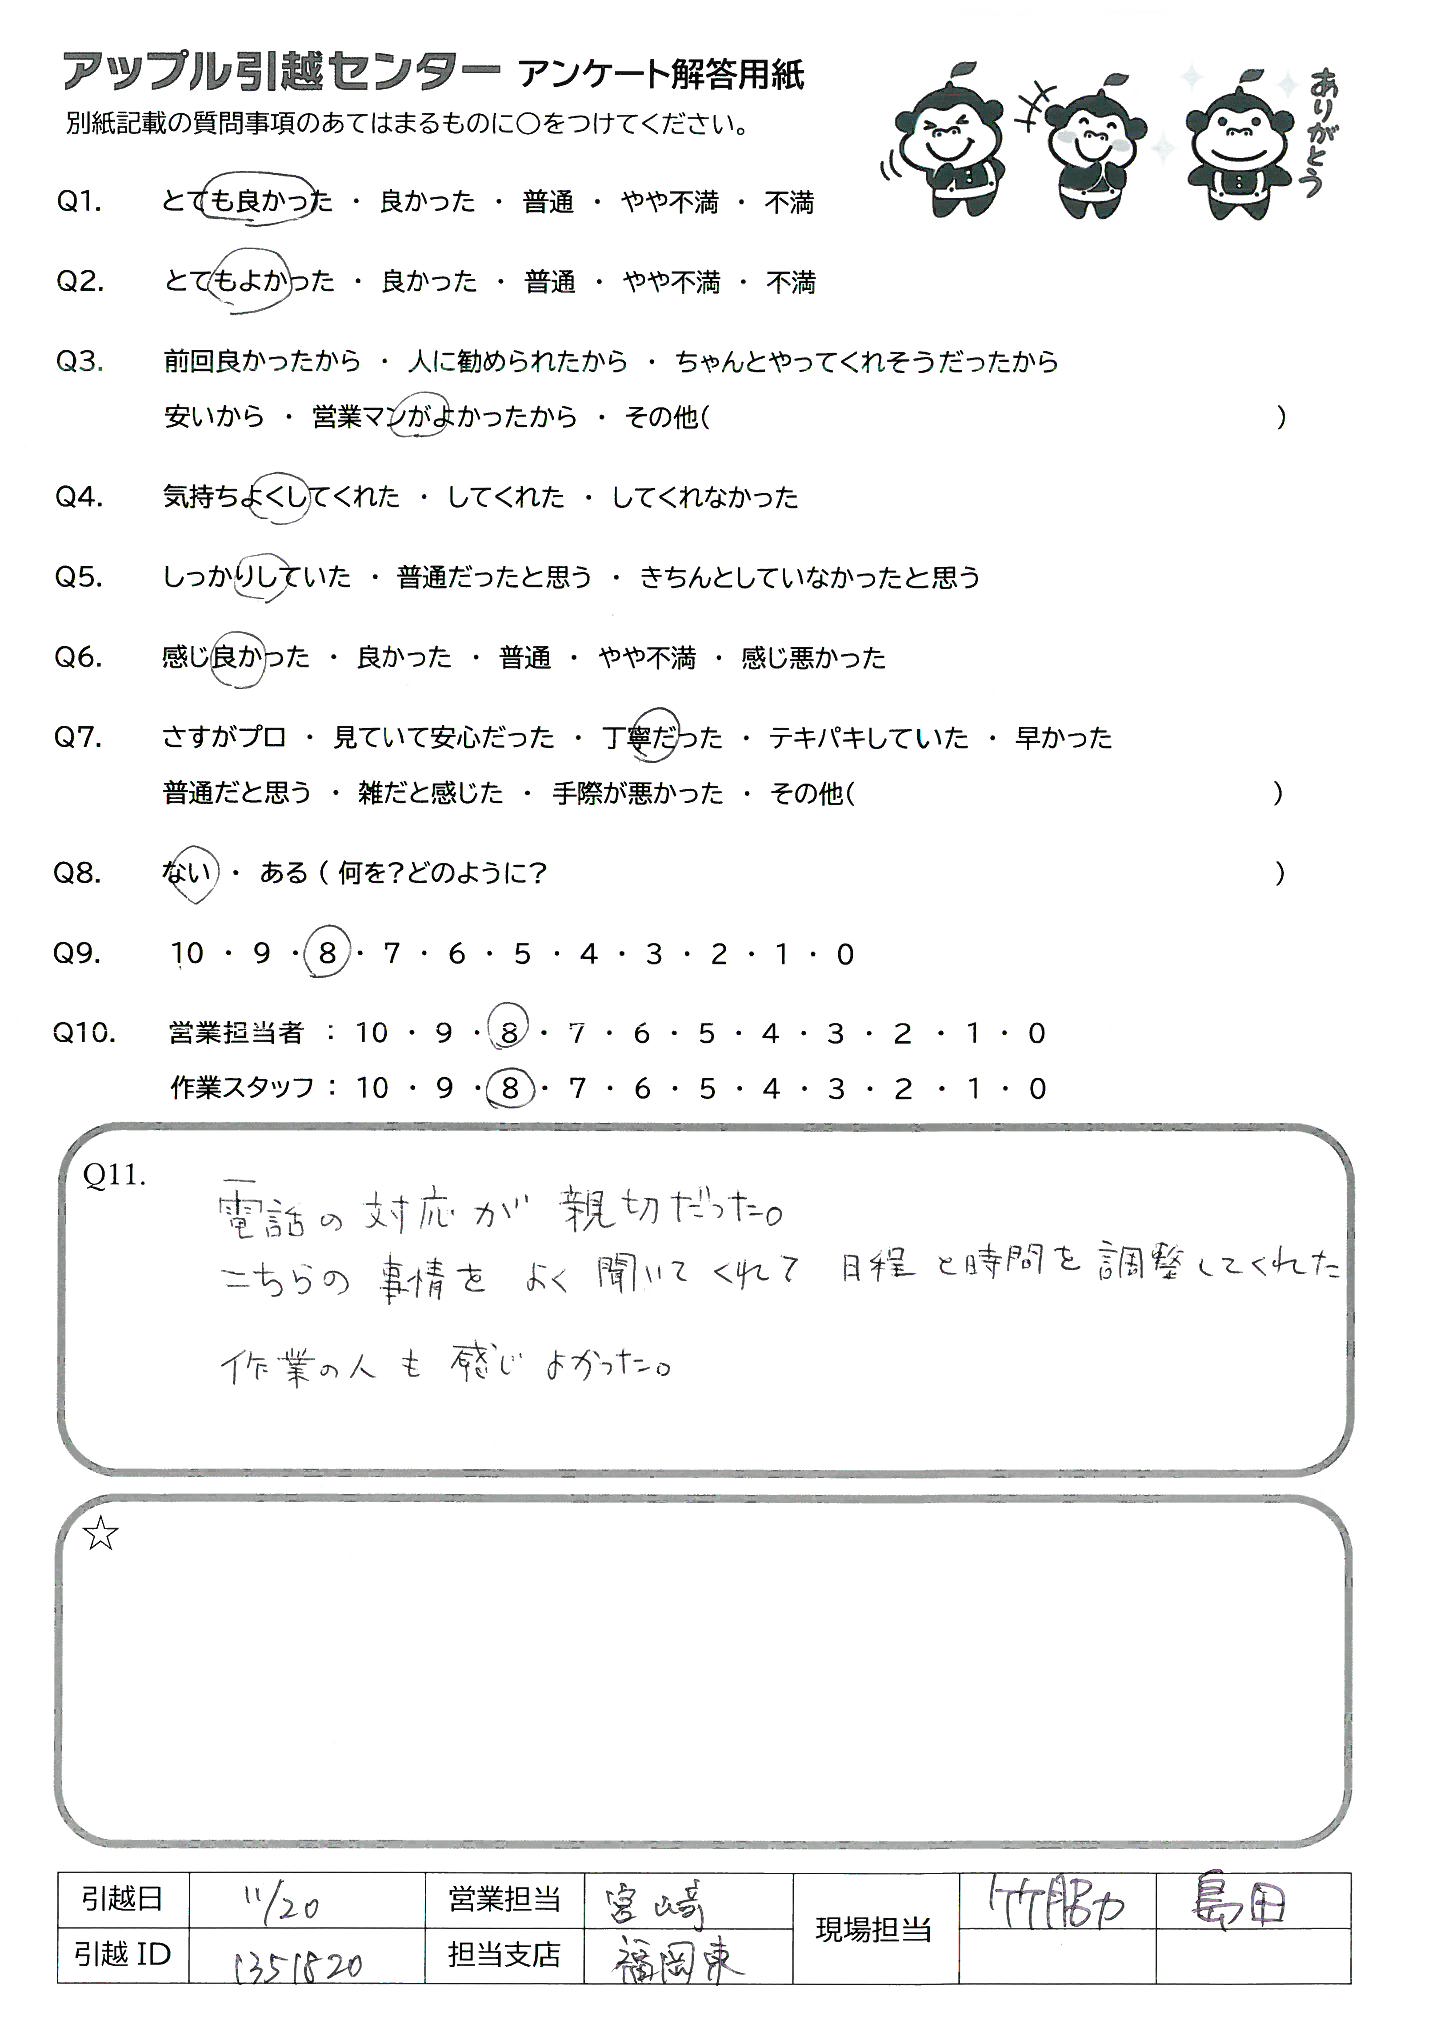 アップル引越センター アンケート解答用紙
別紙記載の質問事項のあてはまるものに〇をつけてください。
ありがとう
Q1. とても良かった ・ 良かった ・ 普通 ・ やや不満 ・ 不満
Q2. とてもよかった ・ 良かった ・ 普通 ・ やや不満 ・ 不満
Q3. 前回良かったから ・ 人に勧められたから ・ ちゃんとやってくれそうだったから
安いから ・ 営業マンがよかったから ・ その他( )
Q4. 気持ちよくしてくれた ・ してくれた ・ してくれなかった
Q5. しっかりしていた ・ 普通だったと思う ・ きちんとしていなかったと思う
Q6. 感じ良かった ・ 良かった ・ 普通 ・ やや不満 ・ 感じ悪かった
Q7. さすがプロ ・ 見ていて安心だった ・ 丁寧だった ・ テキパキしていた ・ 早かった
普通だと思う ・ 雑だと感じた ・ 手際が悪かった ・ その他( )
Q8. ない ・ ある ( 何を?どのように? )
Q9. 10 ・ 9 ・ 8 ・ 7 ・ 6 ・ 5 ・ 4 ・ 3 ・ 2 ・ 1 ・ 0
Q10. 営業担当者 : 10 ・ 9 ・ 8 ・ 7 ・ 6 ・ 5 ・ 4 ・ 3 ・ 2 ・ 1 ・ 0
作業スタッフ : 10 ・ 9 ・ 8 ・ 7 ・ 6 ・ 5 ・ 4 ・ 3 ・ 2 ・ 1 ・ 0
Q11.
電話の対応が 親切だった。
こちらの 事情を よく 聞いてくれて 日程と時間を調整してくれた
作業の人も 感じよかった。
☆
引越日 11/20 営業担当 宮崎 現場担当 島田
引越 ID 1351820 担当支店 福岡東